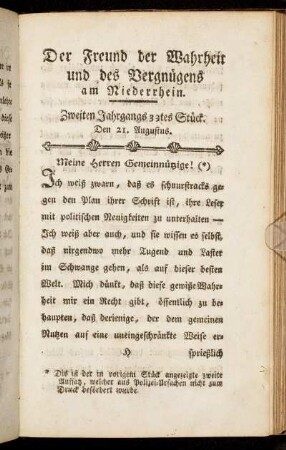 Der Freund der Wahrheit
und des Vergnügens
am Niederrhein.
Zweiten Jahrgangs 33tes Stück.
Den 21. Augustus.
Meine Herren Gemeinnützige! (*)
Ich weiß zwarn, daß es schnurstracks ge-
gen den Plan ihrer Schrift ist, ihre Leser
mit politischen Neuigkeiten zu unterhalten —
Ich weiß aber auch, und sie wissen es selbst,
daß nirgendwo mehr Tugend und Laster
im Schwange gehen, als auf dieser besten
Welt. Mich dünkt, daß diese gewiße Wahr-
heit mir ein Recht gibt, öffentlich zu be-
haupten, daß derjenige, der dem gemeinen
Nutzen auf eine uneingeschränkte Weise er-
sprießlich
* Dis ist der in vorigem Stück angezeigte zweite
Aufsatz, welcher aus Polizei-Ursachen nicht zum
Druck befördert wurde.